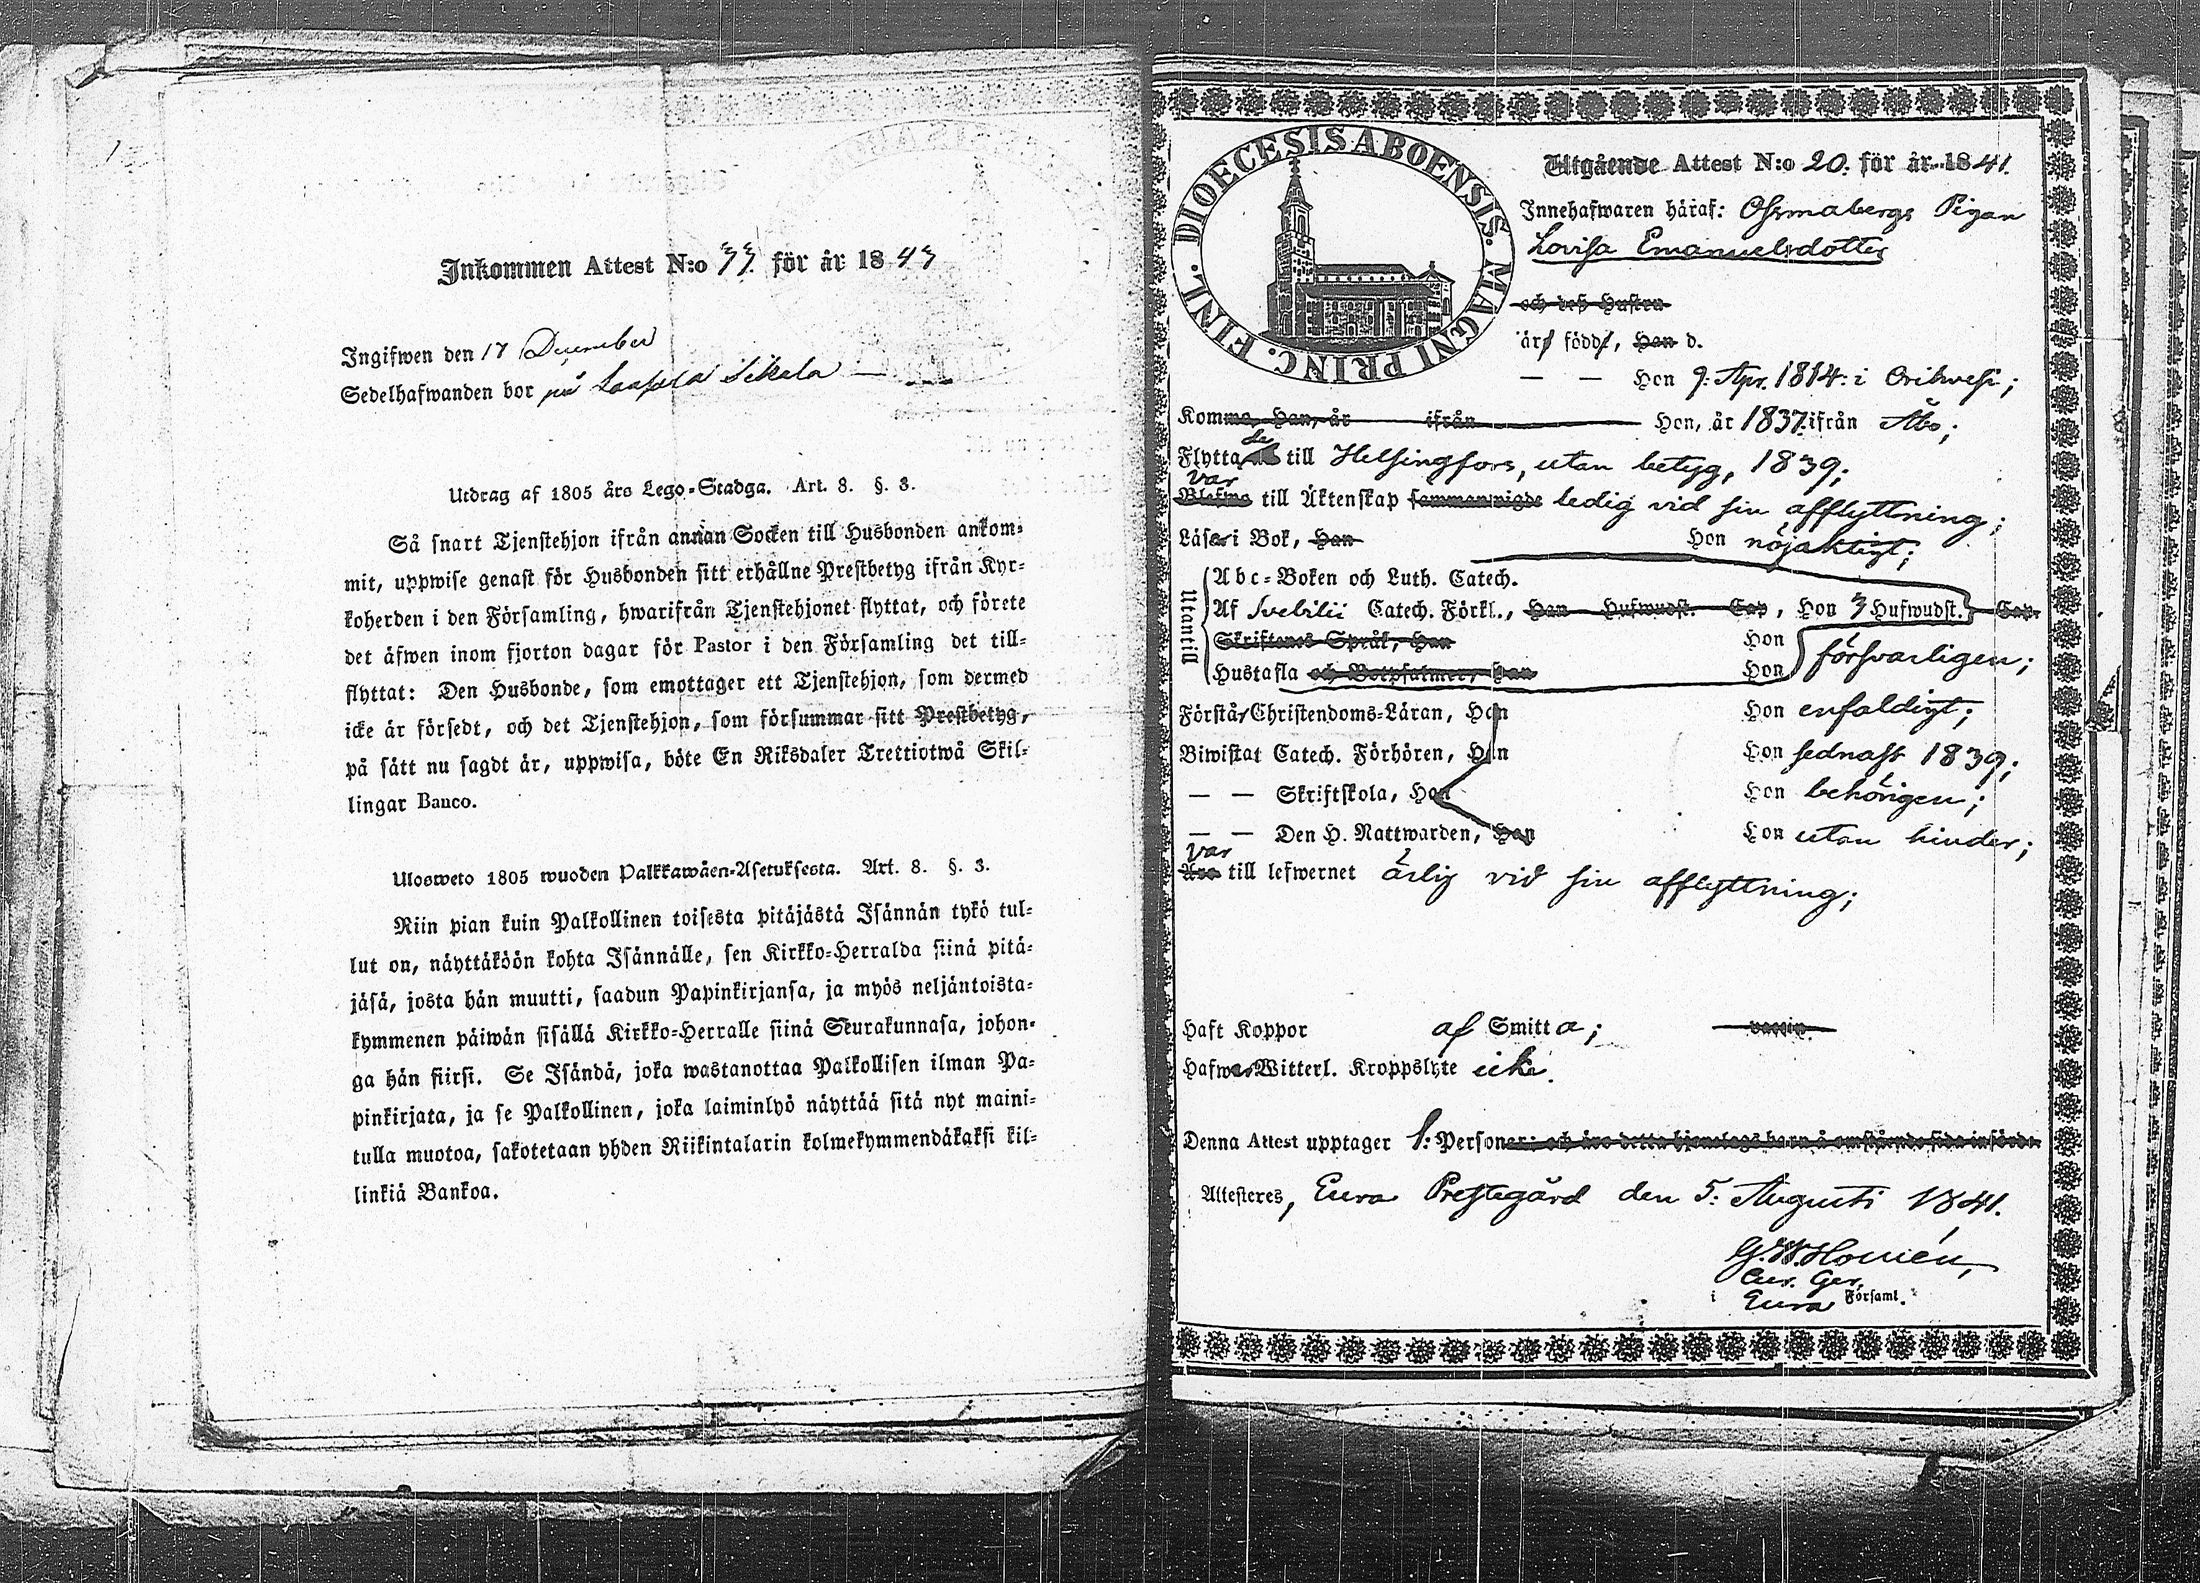 Inkommen Attest N:o 33. för år 1843
Ingifwen den 17 December
Sedelhafwanden bor på
Utdrag af 1805 års Lego-Stadga. Art. 8. §. 3.
Så snart Tjenstehjon ifrån annan Socken till Husbonden ankom-
mit, uppwise genast för Husbonden sitt erhållne Prestbetyg ifrån Kyr-
koherden i den Församling, hwarifrån Tjenstehjonet flyttat, och förete
det äfwen inom fjorton dagar för Pastor i den Församling det till-
flyttat: Den Husbonde, som emottager ett Tjenstehjon, som dermed
icke är försedt, och det Tjenstehjon, som försummar sitt Prestbetyg,
på sätt nu sagdt är, uppwisa, böte En Riksdaler Trettiotwå Skil-
lingar Banco.
Ulosweto 1805 wuoden Palkkawäen-Asetuksesta. Art. 8. §. 3.
Niin pian kuin Palkollinen toisesta pitäjästä Isännän tykö tul-
lut on, näyttäköön kohta Isännälle, sen Kirkko-Herralda siinä pitä-
jäsä, josta hän muutti, saadun Papinkirjansa, ja myös neljäntoista-
kymmenen päiwän sisällä Kirkko-Herralle siinä Seurakunnasa, johon-
ga hän siirsi. Se Isändä, joka wastanottaa Palkollisen ilman Pa-
pinkirjata, ja se Palkollinen, joka laiminlyö näyttää sitä nyt maini-
tulla muotoa, sakotetaan yhden Riikintalarin kolmekymmendäkaksi kil-
linkiä Bankoa.
DIOECESIS ABOENSIS. MAGNI PRINC. FINL.
Utgående Attest N:o 20. för år 1841.
Innehafwaren häraf: Osmabergs Pigan
Lovisa Emanuelsdotter
och deß Hustru
är född, Han d.
— — Hon 9. Apr. 1814: i Orihvesi;
Komma, Han, år ifrån Hon, år 1837. ifrån Åbo;
Flyttade till Helsingfors, utan betyg, 1839;
var
till Äktenskap ledig vid sin afflyttning;
Läser i Bok, Han Hon nöjaktigt;
Utantill
Abc-Boken och Luth. Catech.
Af Svebilii Catech. Förkl., Han Hufwudst. Cap, Hon 3 Hufwudst. Cap.
Skriftenes Språk, Han Hon
Hustafla och Botpsalmer, Han Hon försvarligen;
Förstår Christendoms-Läran, Han Hon enfaldigt;
Biwistat Catech. Förhören, Han Hon sednast 1839;
— — Skriftskola, Han Hon behörigen;
— — Den H. Nattwarden, Han Hon utan hinder;
var
Äro till lefwernet ärlig vid sin afflyttning;
Haft Koppor af Smitta; vaccin.
Hafwer Witterl. Kroppslyte icke.
Denna Attest upptager 1: Personer: och äro detta hjonelags barn å omstående sida införde.
Attesteres, Eura Prestegård den 5: Augusti 1841.
Cur. Ger.
i Eura Församl.